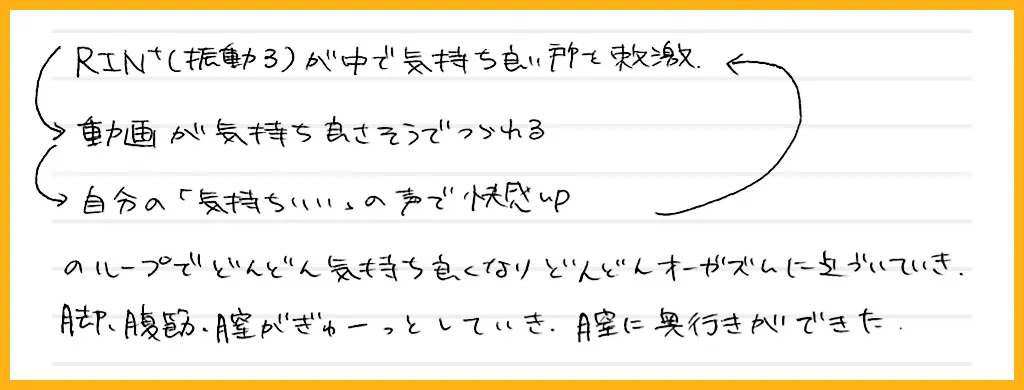 RIN+(振動3)が中で気持ち良い所を刺激.
動画が気持ち良さそうでつられる
自分の「気持ちいい」の声で快感up
のループでどんどん気持ち良くなりどんどんオーガズムに近づいていき.
脚、腹筋、膣がぎゅーっとしていき、膣に奥行きができた.